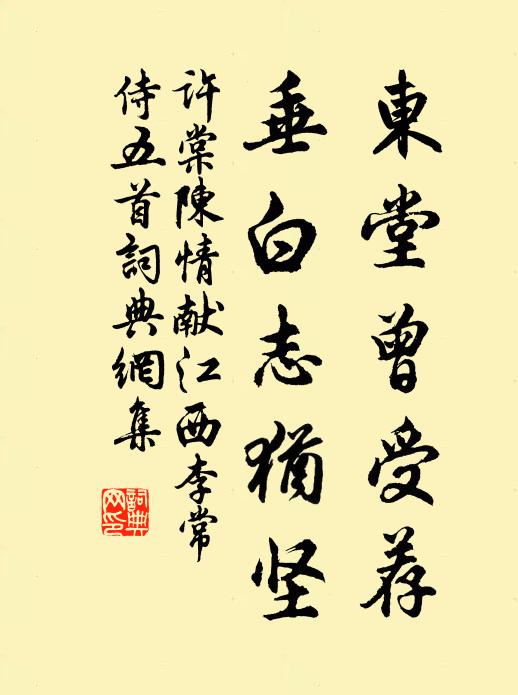 東堂曾受荐
垂白志猶坚
许棠陳情献江西李常
侍五首詞典網集
詞典
网印